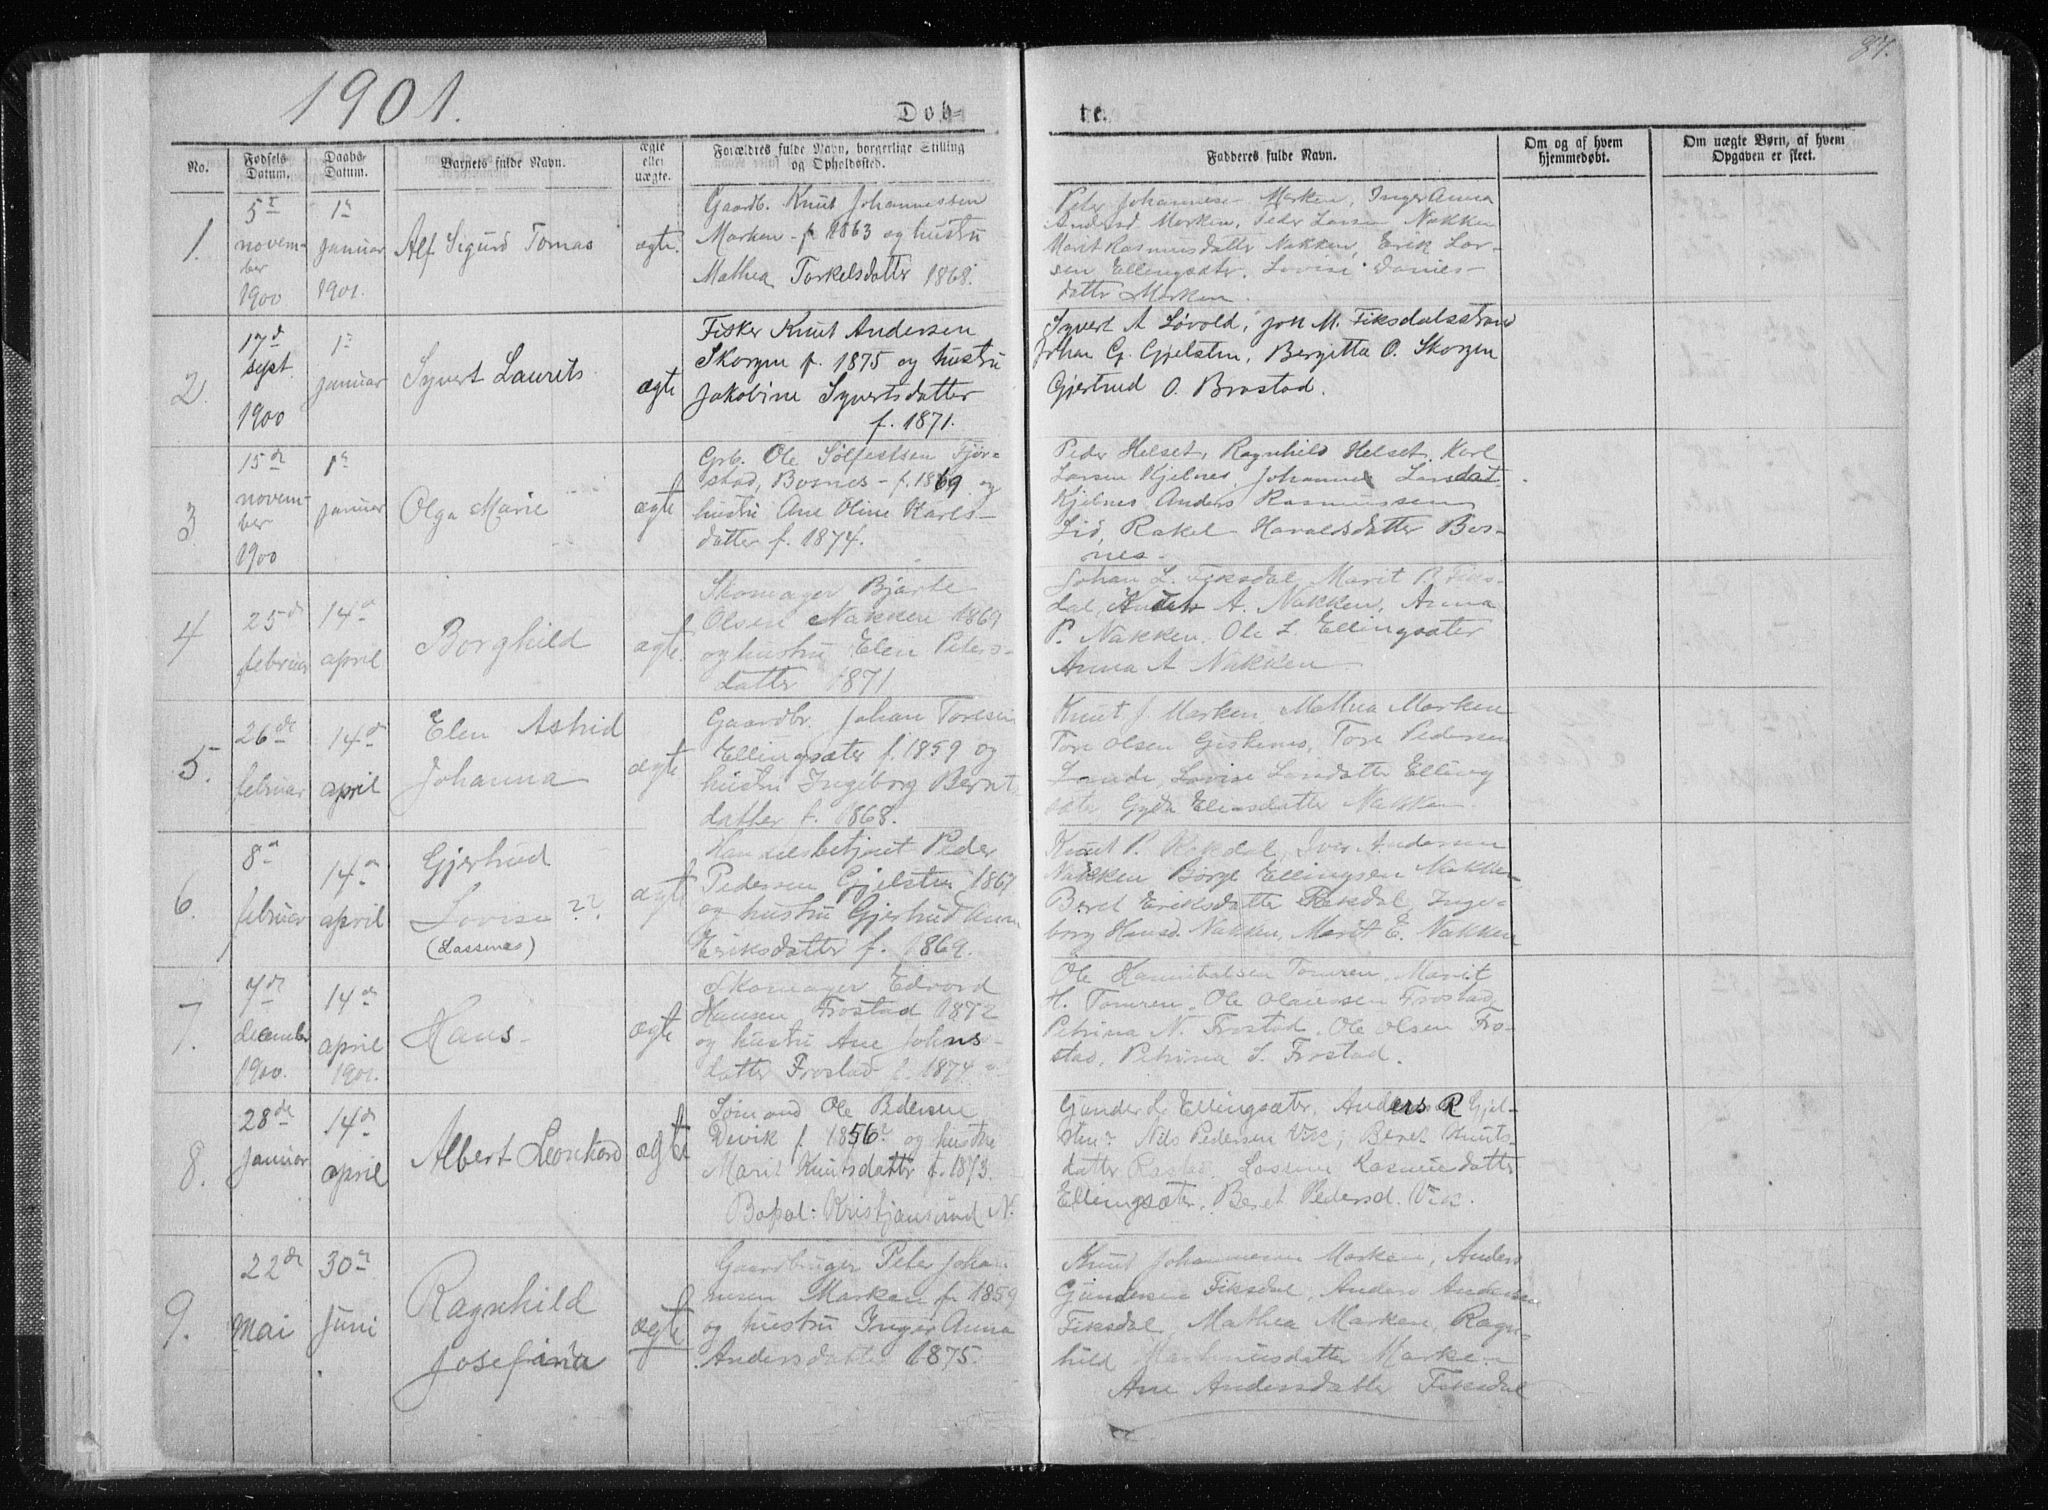 87.
1901.
Døb-
te.
No.
Fødsels Datum.
Daabs- Datum.
Barnets fulde Navn.
ægte eller uægte.
Forældres fulde Navn, borgerlige Stilling og Opholdssted.
Faddernes fulde Navn.
Om og af hvem hjemmedøbt.
Om uægte Børn, af hvem Opgaven er skeet.
1.
5te novem-
ber
1900
1ste
januar
1901.
Alf Sigurd Tomas
ægte.
Gaardb. Knut Johannessen
Marken f. 1863 og hustru
Mathea Torkelsdatter 1868.
Peter Johannesen Marken, Inger Anna
Andersd Marken, Peder Larsen Nakken
Marit Rasmusdatter Nakken, Erik Lar-
sen Ellingsæter, Lovise Daniels-
datter Marken.
2.
17de
sept.
1900
1ste
januar
Syvert Laurits
ægte
Fisker Knut Andersen
Skorgen f. 1875 og hustru
Jakobine Syvertsdatter
f. 1871.
Syvert A Løvold, Jon M. Fiksdalsstrand
Johan G. Gjelsten, Bergitta O. Skorgen
Gjertrud O. Brastad.
3
15de
novem-
ber
1900
1ste
januar
Olga Marie
ægte
Grb. Ole Solfestsen Fjør-
stad, Bosnes - f. 1869 og
hustru Ane Oline Karls-
datter f. 1874.
Peder Helset, Ragnhild Helset, Karl
Larsen Kjelnes, Johanne Larsdat.
Kjelnes, Anders Rasmussen
Lid, Rakel Haraldsdatter Bos-
nes.
4
25de
februar
14de
april
Borghild
ægte.
Skomager Bjarte
Olsen Nakken 1869
og hustru Elen Peters-
datter 1871
Johan L. Fiksdal, Marit B. Fiks-
dal, A. Nakken, Anna
P. Nakken, Ole L. Ellingsæter
Anna A Nakken
5.
26de
februar
14de
april
Elen Astrid
Johanna
ægte
Gaardbr. Johan Toresen
Ellingsæter f. 1859 og
hustru Ingeborg Bernt-
datter f. 1868.
Knut J. Marken, Mathea Marken
Tore Olsen Tore Pedersen
Lande, Lovise Larsdatter Elling
sæter Gyda Eliasdatter Nakken.
6.
8de
februar
14de
april
Gjertrud
Lovise ??
(Lassenes)
ægte
Handelsbetjent Peder
Pedersen Gjelsten 1867
og hustru Gjertrud Anna
Eriksdatter f. 1869.
Knut P. Iver Andersen
Nakken Børge Ellingsen Nakken
Beret Eriksdatter Fiksdal, Inge-
borg Hansd. Nakken, Marit E. Nakken
7.
7de
december
1900.
14de
april
1901.
Hans
ægte
Skomager Edvard
Hansen Frostad 1872
og hustru Ane Johns-
datter Frostad f. 1874.
Ole Hannibalsen Tomren, Marit
H. Tomren, Ole Olaussen Frostad,
Petrina N. Frostad, Ole Olsen Fro-
stad, Petrina L. Frostad.
8.
28de
januar
14de
april
Albert Leonhard
ægte
Sømand Ole Pedersen
Devik f. 1856 og hustru
Marit Knutsdatter f. 1873.
Bopæl: Kristjansund N.
Gunder L. Ellingsæter, Anders R Gjel-
sten, Nils Pedersen Vik, Beret Knuts-
datter Lassine Rasmusdatter
Ellingsæter, Beret Pedersd. Vik.
9.
22de
mai
30te
Juni
Ragnhild
Josefina
ægte
Gaardbruger Peter Johan
nesen Marken f. 1859
og hustru Inger Anna
Andersdatter 1875.
Knut Johannesen Marken, Anders
Gundersen Fiksdal, Anders Anders
Fiksdal, Mathea Marken, Ragn-
hild Marken
Ane Andersdatter Fiksdal